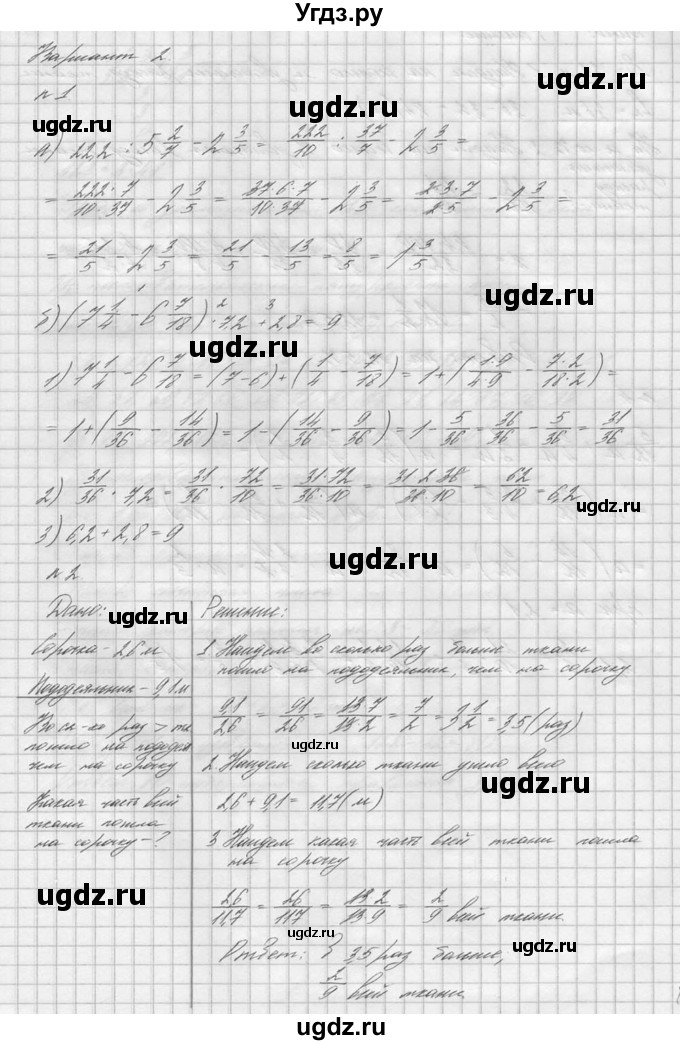 Угдз.ру
Вариант 2.
ugdz.ru
n 1
ugdz.ru
ugdz.ru
а) 22,2 : 5 2/7 - 2 3/5 = 222/10 : 37/7 - 2 3/5 =
= 222·7/10·37 - 2 3/5 = 37·6·7/10·37 - 2 3/5 = 2·3·7/2·5 - 2 3/5 =
= 21/5 - 2 3/5 = 21/5 - 13/5 = 8/5 = 1 3/5
ugdz.ru
б) (7 1/4 - 6 7/18) · 7,2 + 2,8 = 9
ugdz.ru
1) 7 1/4 - 6 7/18 = (7-6) + (1/4 - 7/18) = 1 + (1·9/4·9 - 7·2/18·2) =
= 1 + (9/36 - 14/36) = 1 - (14/36 - 9/36) = 1 - 5/36 = 36/36 - 5/36 = 31/36
2) 31/36 · 7,2 = 31/36 · 72/10 = 31·72/36·10 = 31·2·36/36·10 = 62/10 = 6,2
ugdz.ru
3) 6,2 + 2,8 = 9
ugdz.ru
n 2
Дано:
ugdz.ru
Решение:
Сорочка - 2,6 м
Пододеяльник - 9,1 м
ugdz.ru
Во ск-ко раз > тк
пошло на пододея
чем на сорочку
Какая часть всей
ткани пошла
на сорочку - ?
ugdz.ru
1 Найдем во сколько раз больше ткани
пошло на пододеяльник, чем на сорочку
9,1/2,6 = 91/26 = 13·7/13·2 = 7/2 = 3 1/2 = 3,5 (раз)
ugdz.ru
2 Найдем сколько ткани ушло всего
ugdz.ru
2,6 + 9,1 = 11,7 (м)
3 Найдем какая часть всей ткани пошла
на сорочку
2,6/11,7 = 26/117 = 13·2/13·9 = 2/9 всей ткани
ugdz.ru
Ответ: В 3,5 раз больше,
ugdz.ru
2/9 всей ткани
ugdz.ru